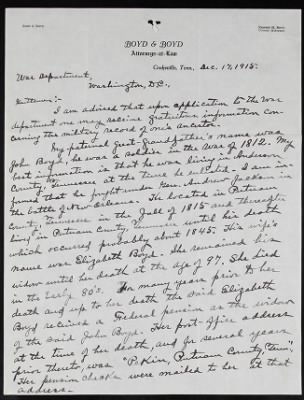 BOYD & BOYD
Attorneys-at-Law
Cookeville, Tenn., Dec. 17, 1915.
War Department,
Washington, D.C.,
Gentlemen:-
I am advised that upon application to the War
department one may receive gratuitous information con-
cerning the military record of one's ancestor.
My paternal great-Grandfather's name was
John Boyd; he was a soldier in the War of 1812. My
best information is that he was living in Anderson
County, Tennessee at the time he enlisted. I am in-
formed that he fought under Gen. Andrew Jackson in
the battle of New Orleans. He located in Putnam
County, Tennessee in the Fall of 1815 and thereafter
lived in Putnam County, Tennessee until his death
which occurred probably about 1845. His wife's
name was Elizabeth Boyd. She remained his
widow until her death at the age of 97. She died
in the early 80's. For many years prior to her
death and up to her death the said Elizabeth
Boyd received a Federal pension as the widow
of the said John Boyd. Her post-office address
at the time of her death, and for several years
prior thereto, was "Pekin, Putnam County, Tenn".
Her pension checks were mailed to her at that
address.